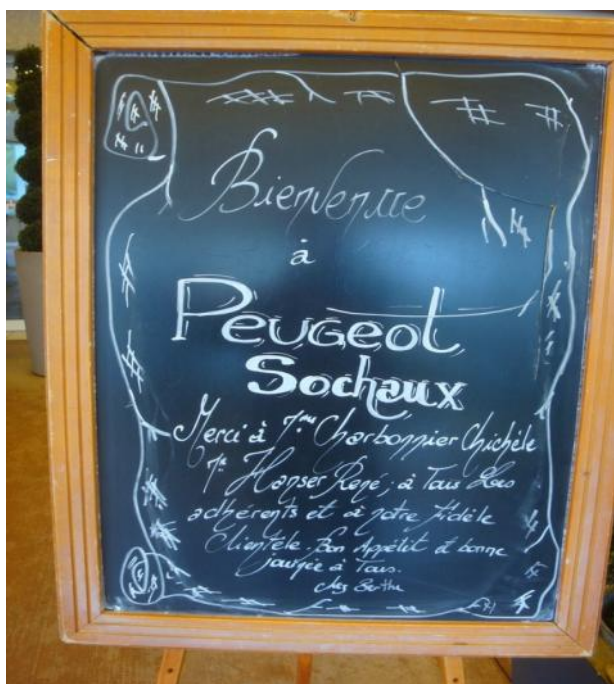 Bienvenue
à
Peugeot
Sochaux
Merci à Mme Charbonnier Chichèle
Mr Hanser René, à Tous Les
adhérents et à notre fidèle
Clientèle. Bon Appétit et bonne
journée à Tous.
chez Berthe